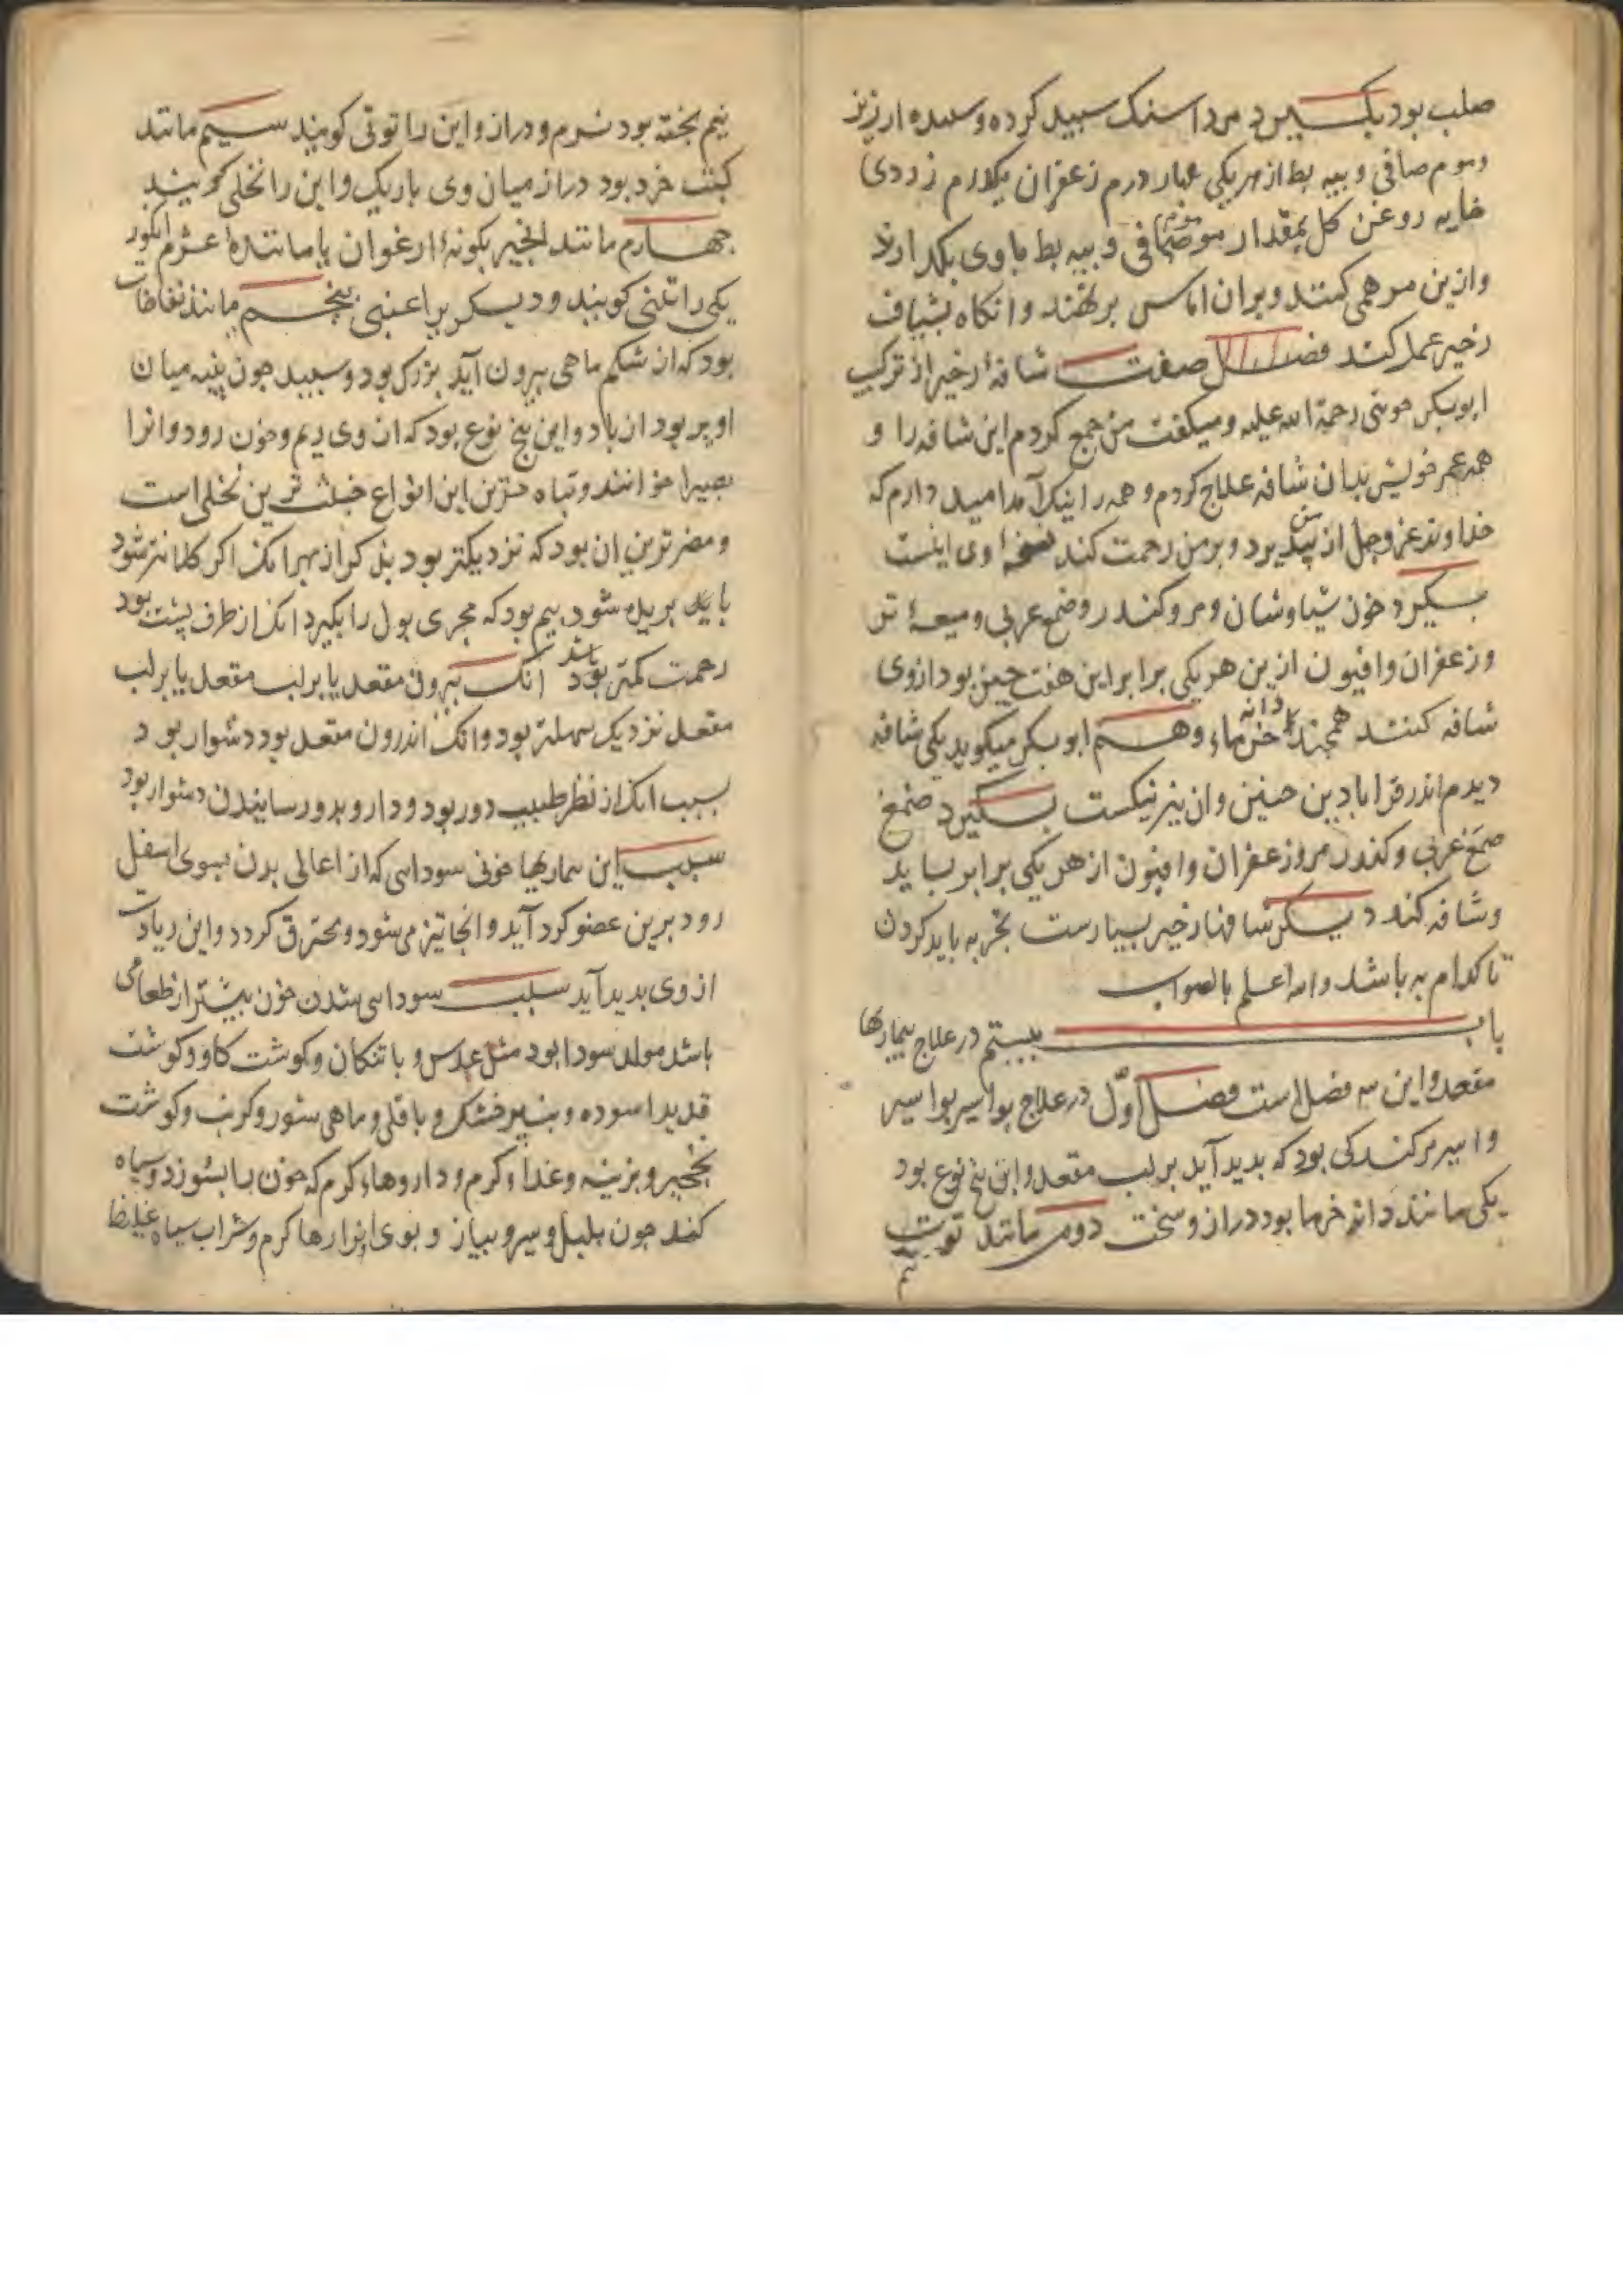 صلب بود بگیرد مرداسنک سبید کرده و سبیده ارزیز
وموم صافی و بیه بط از هریکی چهار درم زعفران یکدرم زردی
خایه روغن کل بمقدار موم صافی و بیه بط باوی بکدازند
وازین مرهمی کنند و بران اماس برنهند وانکاه بشیاف
زخیر عمل کنند فصل صفت شافهٔ زخیر از ترکیب
ابوبکر حوینی رحمة الله علیه ومیکفت من جمع کردم این شافه را و
همه عمر خویش بدان شافه علاج کردم وهمه را نیک آمد امید دارم که
خداوند عز وجل از من ببذیرد وبر من رحمت کند نسخهٔ اوی اینست
بکیرد خون سیاوشان ومر وکندر وصمغ عربی ومیعهٔ تر
وزعفران وافیون ازین هر یکی برابر این هفت جیز بود ازوی
شافه کنند همجند دانه خرماء وهم ابوبکر میکوید یکی شافه
دیدم اندر قراباذین حنین وان نیز نیکست بکیرد صمغ
صمغ عربی وکندر مر وزعفران وافیون از هر یکی برابر بساید
وشافه کند دیکر شافها زخیر بسیارست تجربه باید کردن
تا کدام به باشد والله اعلم بالصواب
باب بیستم در علاج بیماریها
مقعد واین سه فصل است فصل اوّل در علاج بواسیر بواسیر
واسیر برکندکی بود که بدید آید بر لب مقعد واین بنج نوع بود
یکی مانند دانه خرما بود دراز وسخت دومی مانند توت
نیم
نیم بخته بود نرم ودراز واین را توتی کویند سیم مانند
کبت خرد بود دراز میان وی باریک واین را نخلی کویند
جهارم مانند انجیر بکونهٔ ارغوان یا مانندهٔ غژم انکور
یکی را تینی کویند ودیکر برا عنبی بنجم مانند نفاخات
بود که از شکم ماهی بیرون آید بزرک بود وسبید جون بنبه میان
او پر بود از باد واین بنج نوع بود که از وی ریم وخون رود وانرا
بصیرا خوانند وتباه ترین این انواع خبیث ترین نخلی است
ومضرترین ان بود که نزدیکتر بود بذکر از بهر انک اکر کلانتر شود
باید بریده شود بیم بود که مجری بول را بکیرد انک از طرف پشت بود
زحمت کمتر بود باشد انک بیرون مقعد یا بر لب مقعد یا بر لب
مقعد نزدیک سهلتر بود وانک اندرون مقعد بود دشوار بود
بسبب انک از نظر طبیب دور بود ودارو بدو رسانیدن دشوار بود
سبب این بیماریها خونی سودایی که از اعالی بدن بسوی اسفل
رود برین عضو کرد آید وانجا تیز می شود ومحترق کردد واین زیادت
از وی بدید آید سبب سودایی شدن خون بیشتر از طعامی
باشد مولد سودا بود مثل عدس و باتنکان وکوشت کاو وکوشت
قدید اسوده وبنیر خشک و باقلی وماهی شور وکرنب وکوشت
نخجیر وبزینه وغذاء کرم و داروهاء کرم که خون را بسوزد وسیاه
کند جون بلبل وسیر وبیاز و بوی ابزارها کرم وشراب سیاه غلیظ